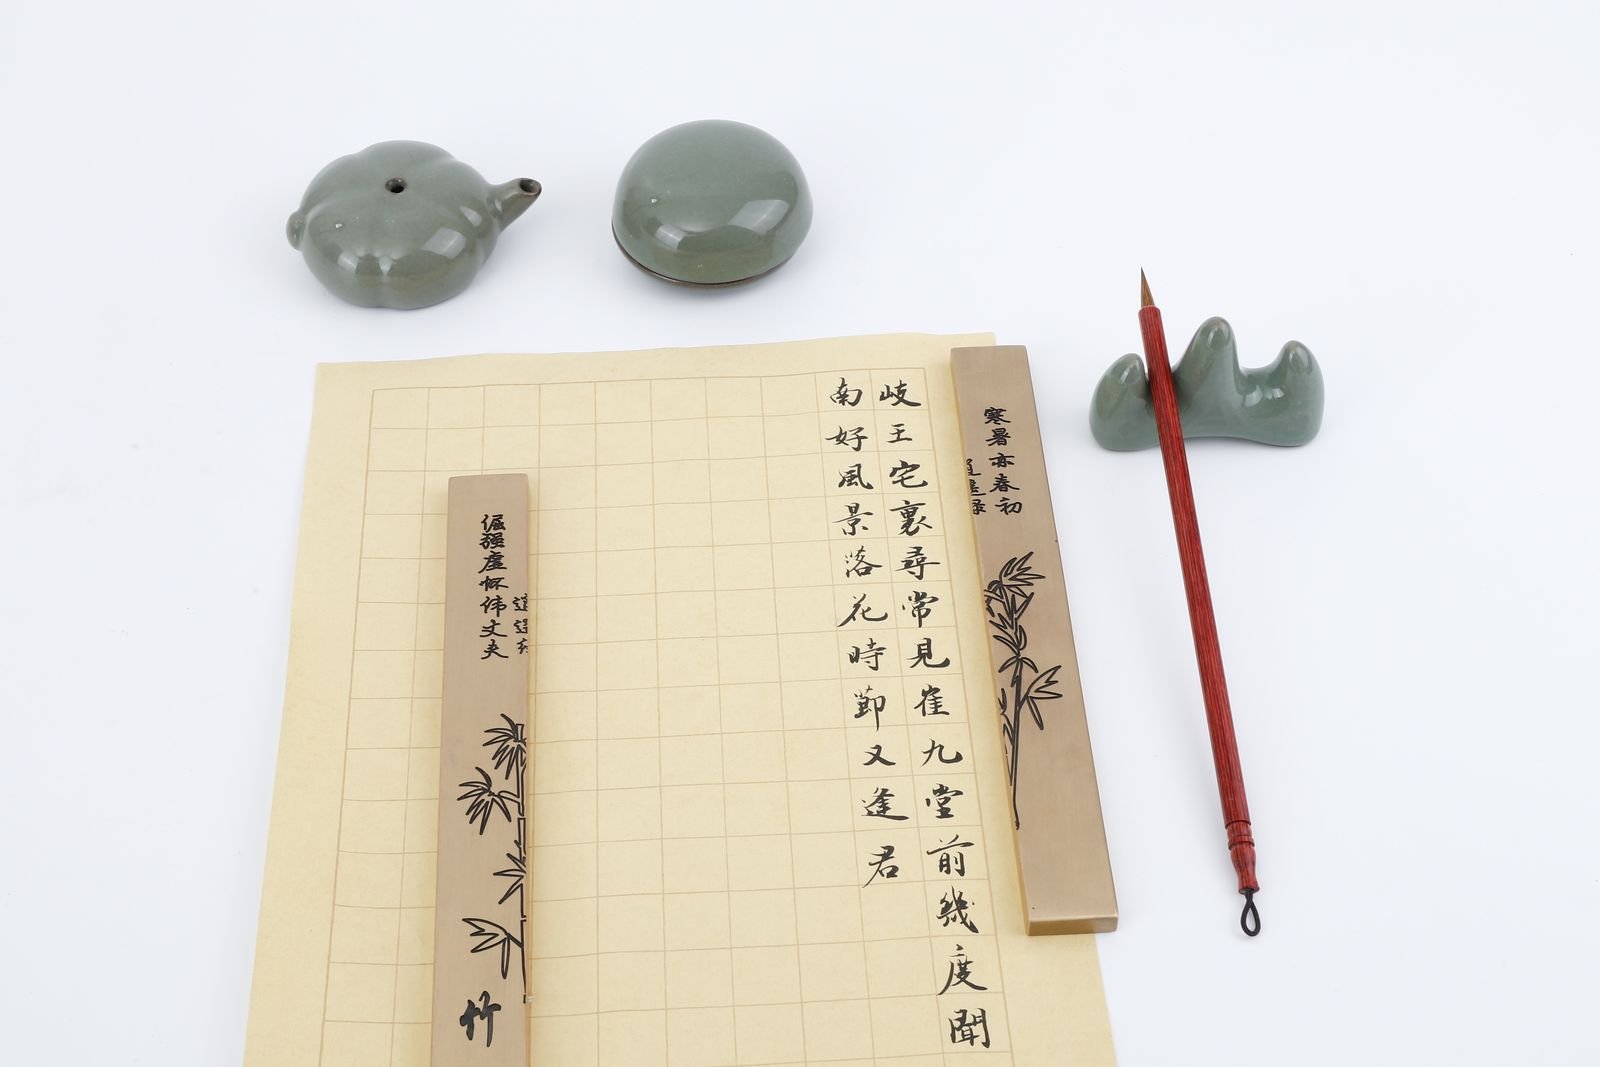 寒暑亦春初
岐王宅裏尋常見崔九堂前幾度聞
南好風景落花時節又逢君
倔强虚怀伟丈夫
竹